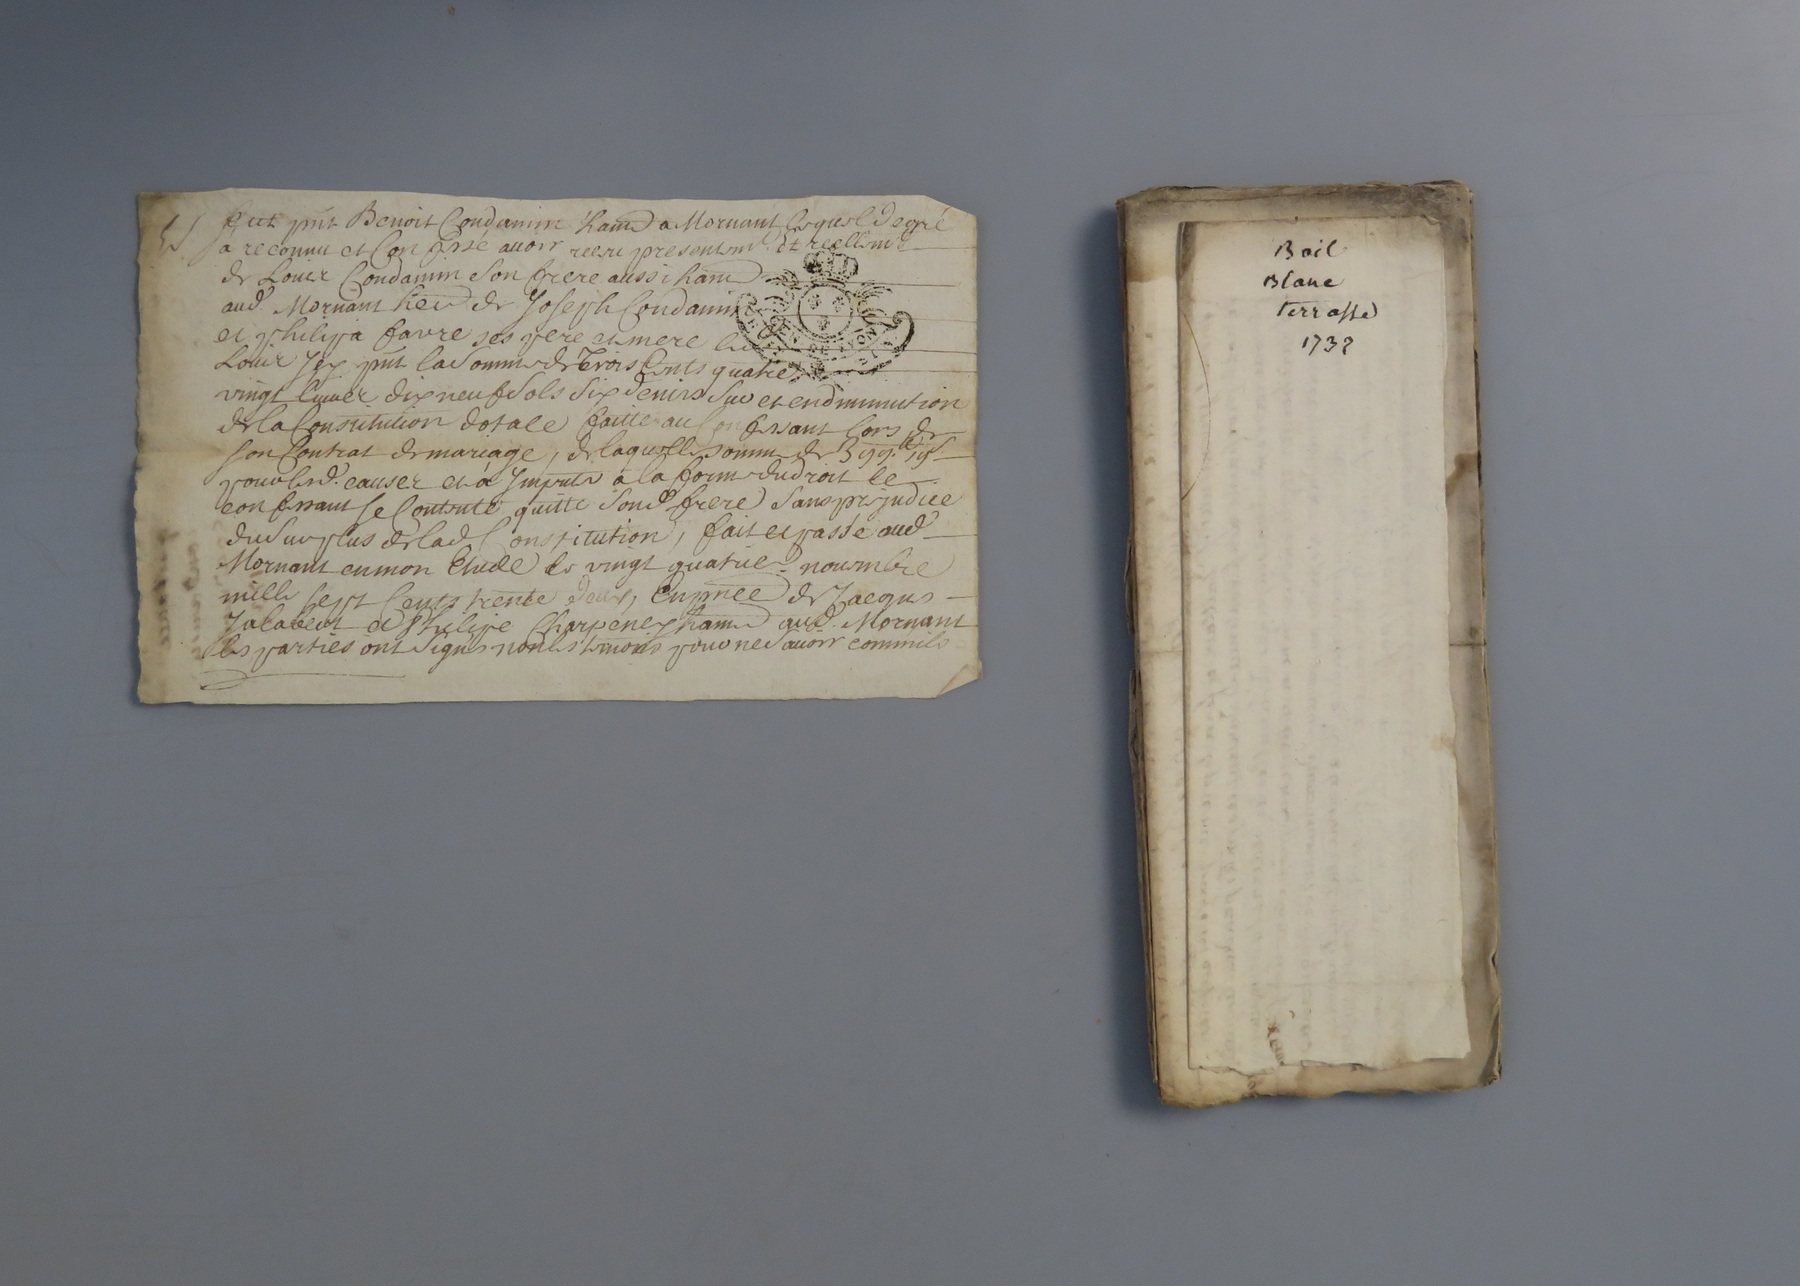 fut pnt Benoit Condamin hant a Mornant lequel de gré
a reconnu et Confessé avoir receu presentemt Et reellemt
de Louis Condamin Son frere aussi hant
aud. Mornant her de Joseph Condamin
et philipa favre ses pere et mere led
Louis Icy pnt la Somme de Trois Cents quatre
vingt livres dix neuf Sols Six deniers Sur et en diminution
de la Constitution dotale faitte au Confessant lors de
Son Contrat de mariage, de laquelle somme de
pour lesd. causes et à Imputer à la forme du droit le
confessant Se Contente quitte Sond frere Sans prejudice
du Surplus de lad Constitution, fait et passé aud
Mornant en mon Etude le vingt quatre novembre
mille Sept Cents trente deux, En pnce de Jacques
Jalabert et Philipe Charpenay hants aud. Mornant
les parties ont Signé non les temoins pour ne Scavoir
Bail
Blanc
terrasse
1732